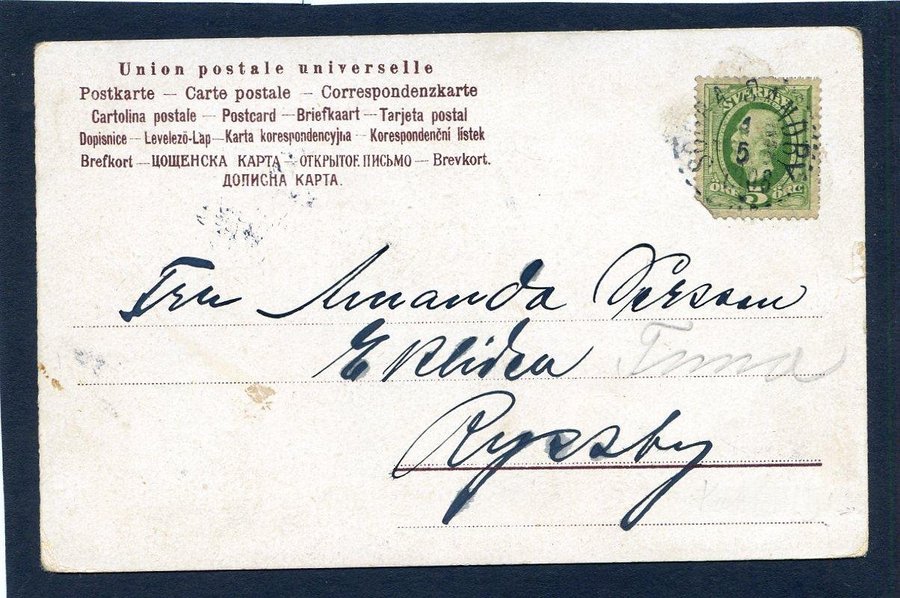 Union postale universelle
Postkarte — Carte postale — Correspondenzkarte
Cartolina postale — Postcard — Briefkaart — Tarjeta postal
Dopisnice — Levelező-Lap — Karta korespondencyjna — Korespondenční lístek
Brefkort — ЦОЩЕНСКА КАРТА — ОТКРЫТОЕ ПИСЬМО — Brevkort.
ДОПИСНА КАРТА.
SVERIGE
5
ÖRE 5 ÖRE
Fru Amanda Persson
Ekliden
Ryssby